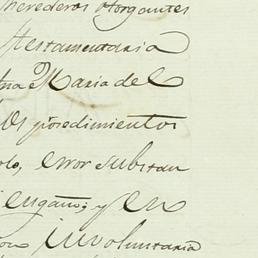 herederos otorgantes
testamentaria
Maria del
los prosedimientos
olo, error substan
engaño; y en
involuntaria